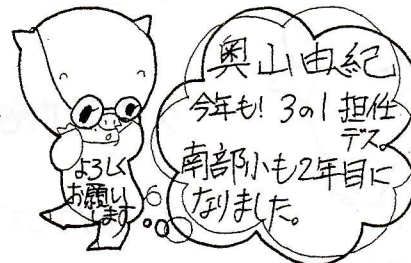 奥山由紀
今年も! 3の1 担任
デス。
南部小も2年目に
なりました。
よろしく
お願い
します